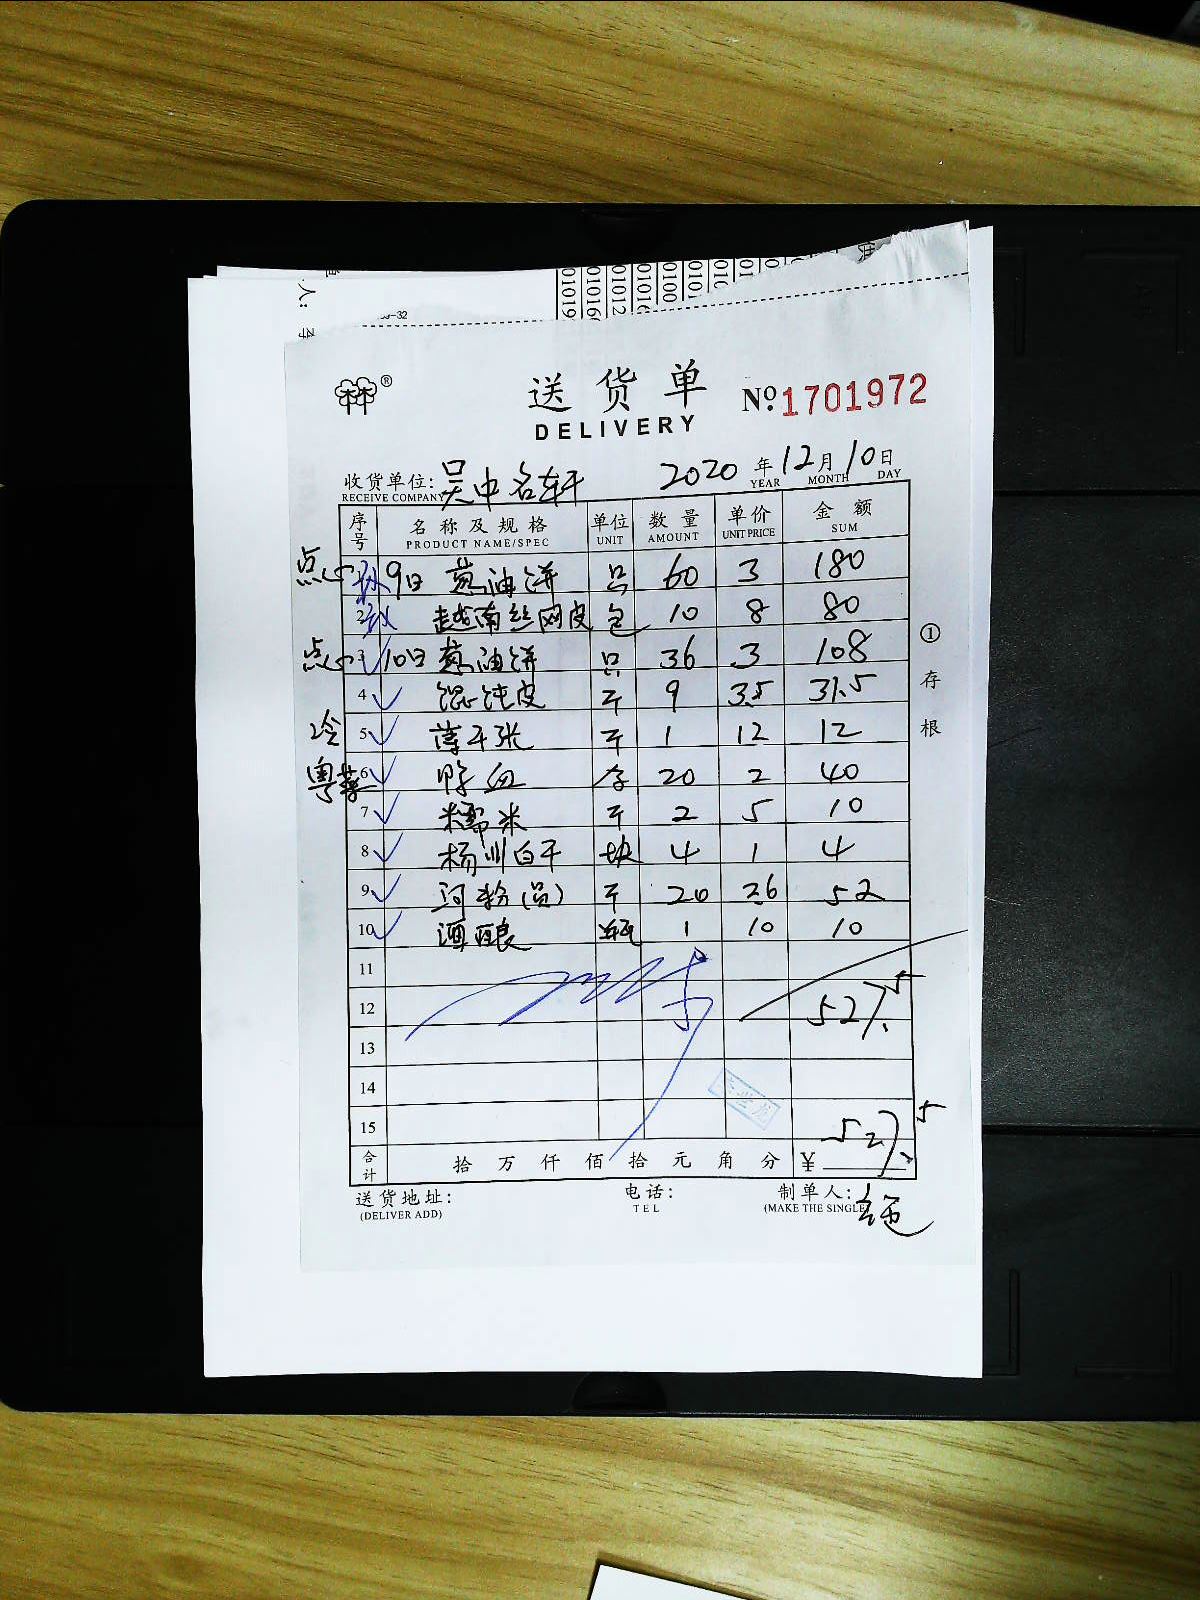 送货单
DELIVERY
№ 1701972
收货单位: 吴中名轩 2020年12月10日
RECEIVE COMPANY YEAR MONTH DAY
序号 名称及规格 单位 数量 单价 金额
PRODUCT NAME/SPEC UNIT AMOUNT UNIT PRICE SUM
点心 1 9日 葱油饼 只 60 3 180
2 越南丝网皮 包 10 8 80
点心 3 10日 葱油饼 只 36 3 108
4 馄饨皮 斤 9 3.5 31.5
冷 5 薄千张 斤 1 12 12
粤菜 6 鸭血 盒 20 2 40
7 糯米 斤 2 5 10
8 杨州白干 块 4 1 4
9 河粉(员) 斤 20 2.6 52
10 酒酿 瓶 1 10 10
11
12 527.5
13
14
15
合计 拾万仟佰拾元角分 ¥ 527.5
送货地址: 电话: 制单人:
(DELIVER ADD) TEL (MAKE THE SINGLE)
① 存根